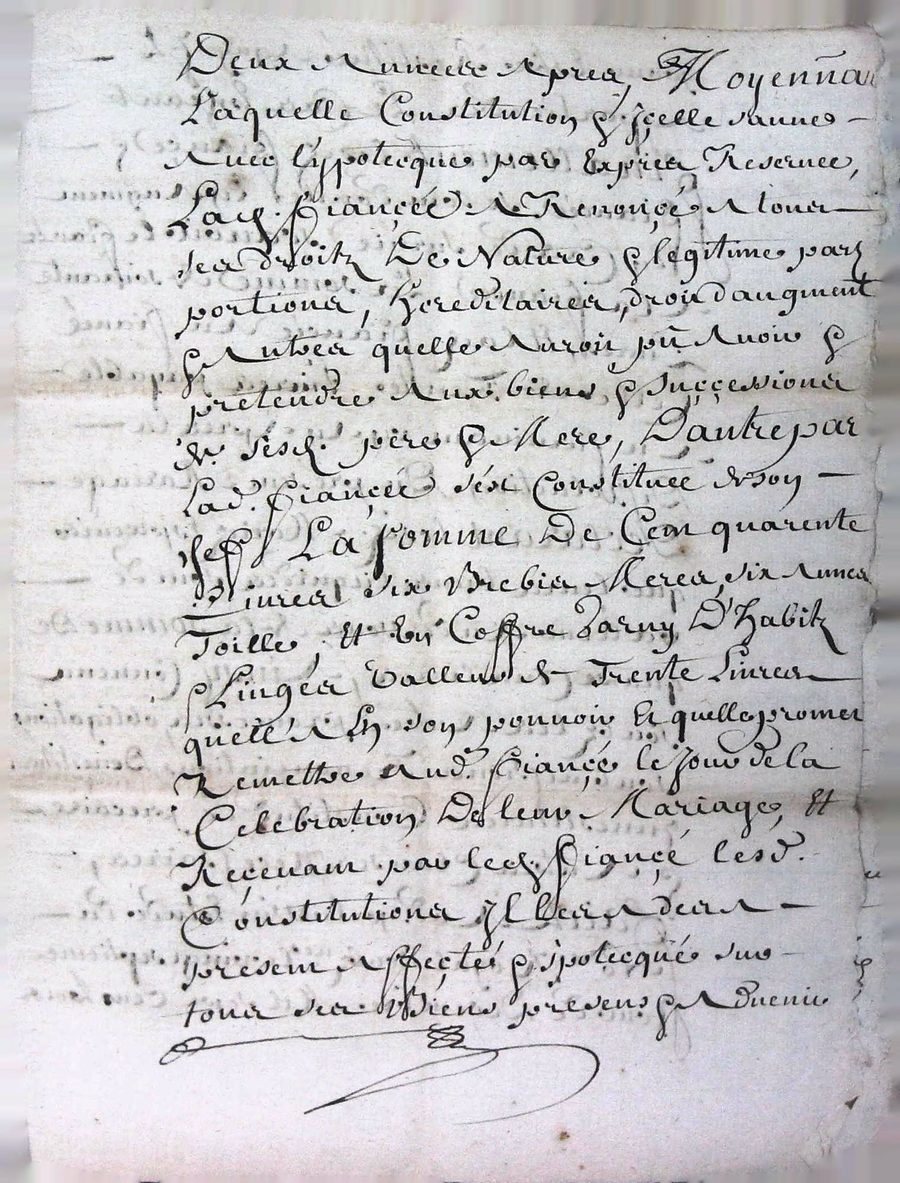 Deux Années Apres, Moyennan
Laquelle Constitution & jçelle sauue
Auec l'ypotecque par Exprés Reseruée,
Lad. fiançée A Renonçé A tous
ses droitz De Nature & legitime par
portions, hereditaires, droit d'augment
& Autres quelle Auroit pû Auoir &
pretendre Aux biens & suççessions
de sesd. pere & Mere, D'autre par
Lad. fiançée s'est Constituée de son
chef La somme De Cent quarente
Liures six Brebis Meres, six Aunes
Toille, Et Un Coffre Garny D'habitz
& Linges Valleur de Trente Liures
quelle A En son pouuoir Et quelle promet
Remettre Aud. fiançé le Jour de la
Celebration De leur Mariage, Et
Reçeuant par led. fiançé lesd.
Constitutions Jl les A des A
present Affecté & ypotecqué sur
tous ses Biens presens & Aduenir